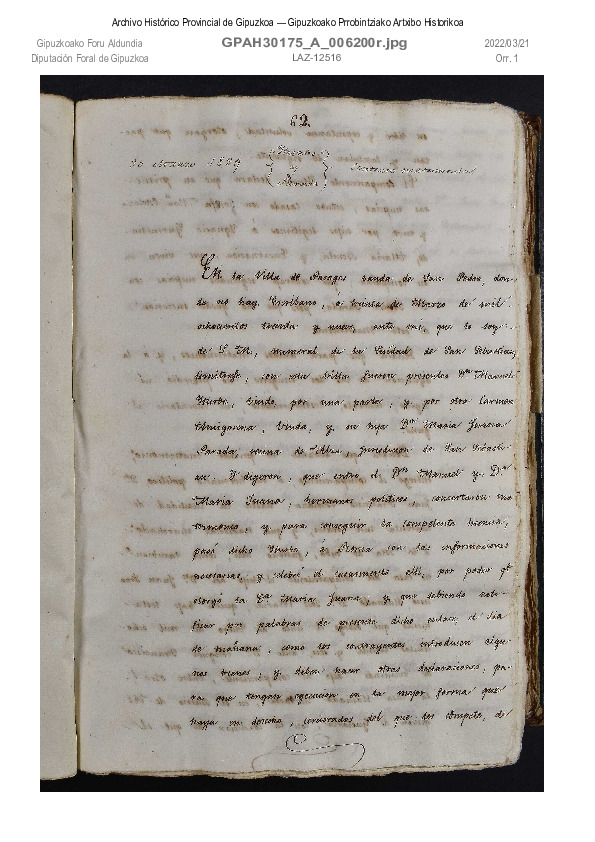 Archivo Histórico Provincial de Gipuzkoa — Gipuzkoako Prrobintziako Artxibo Historikoa
Gipuzkoako Foru Aldundia
GPAH30175_A_006200r.jpg
2022/03/21
Diputación Foral de Gipuzkoa
LAZ-12516
Orr. 1
62.
30 Marzo 1839
En la Villa de Pasages vanda de San Pedro, don-
de no hay Escribano, á treinta de Marzo de mil
ochocientos treinta y nueve, ante mí, que lo soy
de S. M., numeral de la Ciudad de San Sebastian,
con esta Villa fueron presentes Dn. Manuel
Yturbe, viudo, por una parte, y por otra Carmen
Amigorena, Viuda, y su hija Dña. Maria Juana
Parada, vecina de Alza, jurisdiccion de San Sebasti-
an. Y digeron, que entre el Dn. Manuel y Dña.
Maria Juana, hermanos politicos, concertaron ma-
trimonio, y para conseguir la competente licencia,
pasó dicho Yturbe, á Roma con las informaciones
necesarias, y celebró el casamiento allí, por poder qe.
otorgó la Da. Maria Juana, y que debiendo rati-
ficar por palabras de presente dicho enlace el dia
de mañana, como los contrayentes introducen algu-
nos bienes, y deben hacer otras declaraciones, pa-
ra que tengan egecucion en la mejor forma que
haya en derecho, cerciorados del que les compete, de